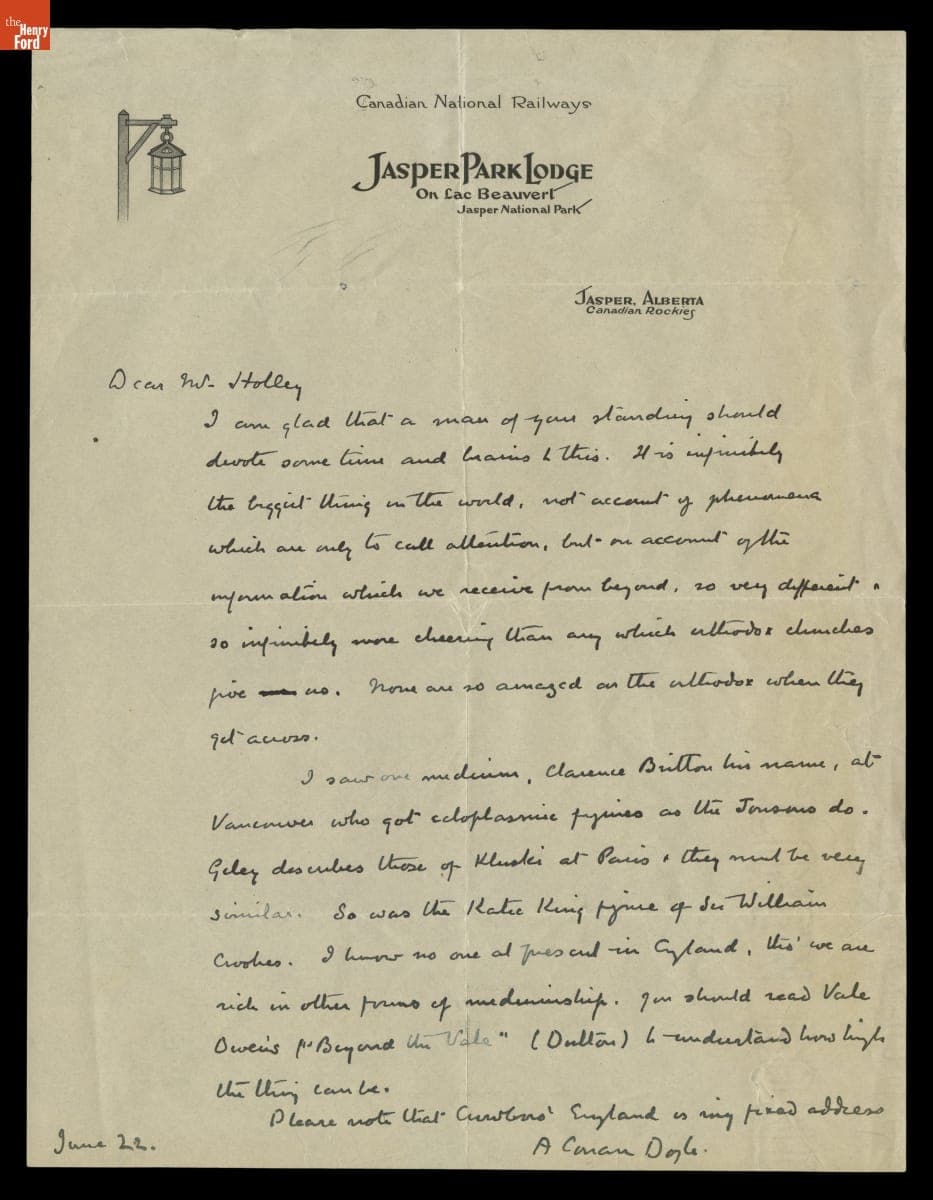 the
Henry
Ford
Canadian National Railways
JASPER PARK LODGE
On Lac Beauvert
Jasper National Park
JASPER, ALBERTA
Canadian Rockies
Dear Mr Holley
I am glad that a man of your standing should
devote some time and brains to this. It is infinitely
the biggest thing in the world, not account of phenomena
which are only to call attention, but on account of the
information which we receive from beyond, so very different &
so infinitely more cheering than any which orthodox churches
give us. None are so amazed as the orthodox when they
get across.
I saw one medium, Clarence Britton his name, at
Vancouver who got ectoplasmic figures as the Jonsons do.
Geley describes those of Kluski at Paris & they must be very
similar. So was the Katie King figure of Sir William
Crookes. I know no one at present in England, tho' we are
rich in other forms of mediumship. You should read Vale
Owen's "Beyond the Vale" (Dutton) to understand how high
the thing can be.
Please note that Crowboro' England is my fixed address
A Conan Doyle.
June 22.